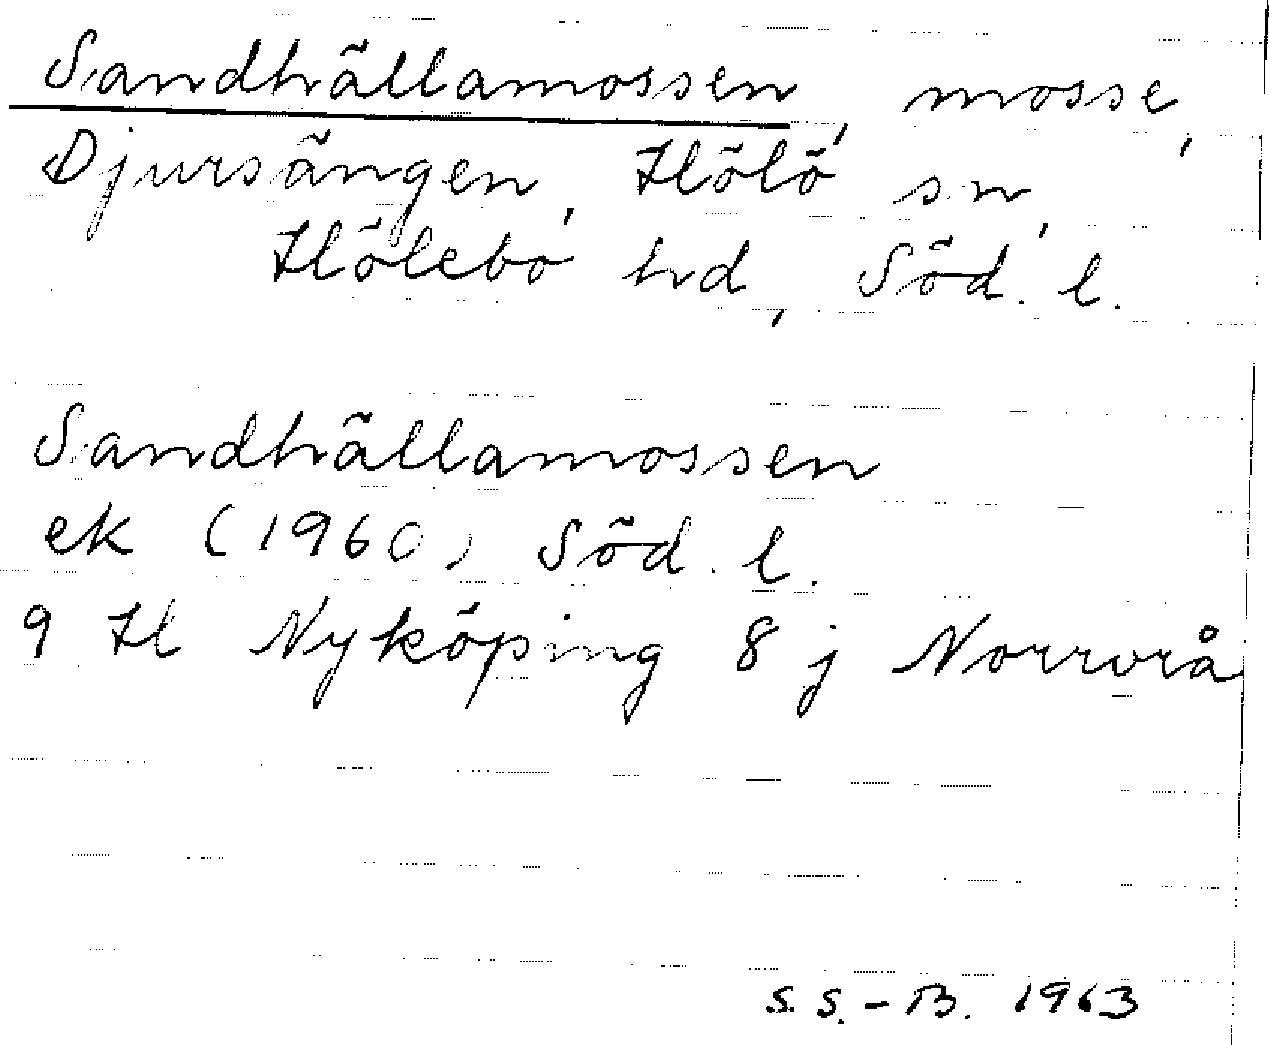 Sandhällamossen, mosse,
Djursängen, Hölö sn,
Hölebo hd, Söd. l.
Sandhällamossen
ek (1960) Söd. l.
9 H Nyköping 8 j Norrvrå
S.S.-B. 1963